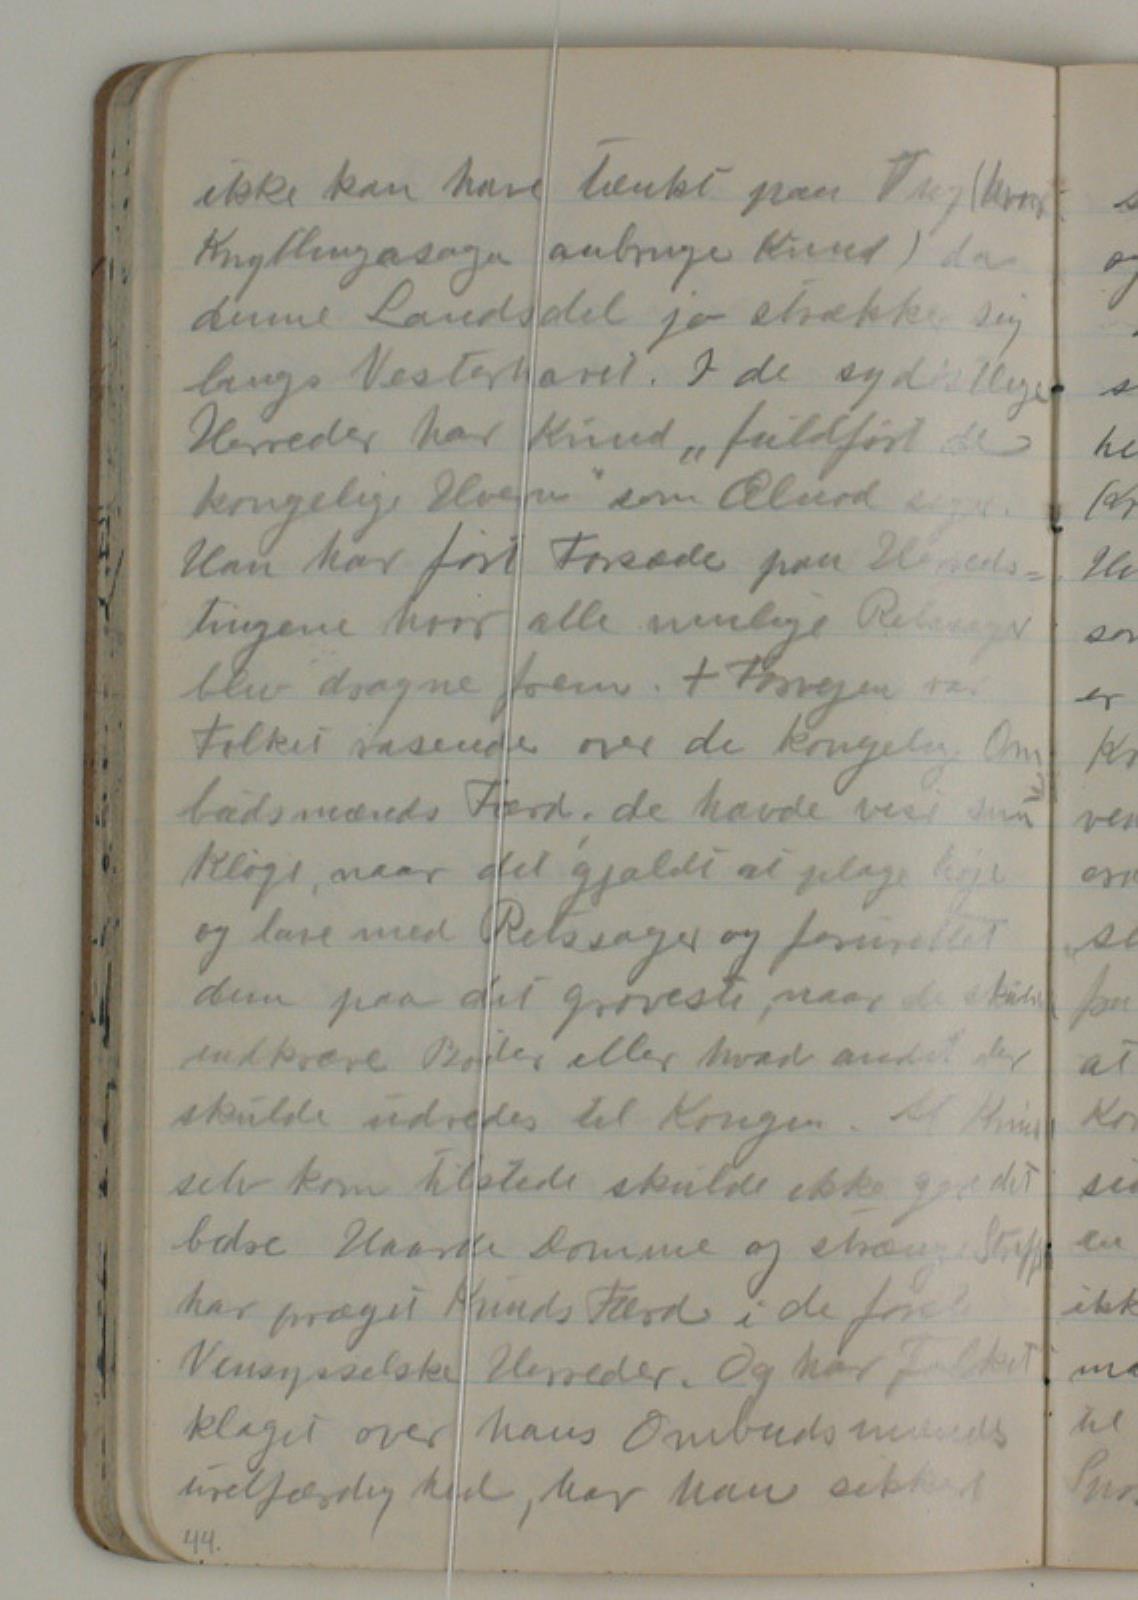 ikke kan have tænkt paa Thy (hvor
Knytlingasaga anbringe Knud) da
denne Landsdel jo strækker sig
langs Vesterhavet. I de sydøstlige
Herreder har Knud „fuldført de
kongelige Hverv" som Ælnod siger.
Han har ført Forsæde paa Herreds=
tingene hvor alle mulige Retssager
blev dragne frem. I Forvejen var
Folket rasende over de kongelige Om
budsmænds Færd; de havde vist sun
Kløgt, naar det gjaldt at plage høje
og lave med Retssager og forurettet
dem paa det groveste, naar de skulde
indkræve Bøder eller hvad andet der
skulde udredes til Kongen. At Knud
selv kom tilstede skulde ikke gøre det
bedre Haarde Domme og strænge Straffe
har præget Knuds Færd i de første
Vensysselske Herreder. Og har Folket
klaget over hans Ombudsmænds
uretfærdighed, har han sikkert
44.
s
og
s
he
Kn
Hv
som
er
Kn
ven
se
at
Kon
en
ikk
ma
til